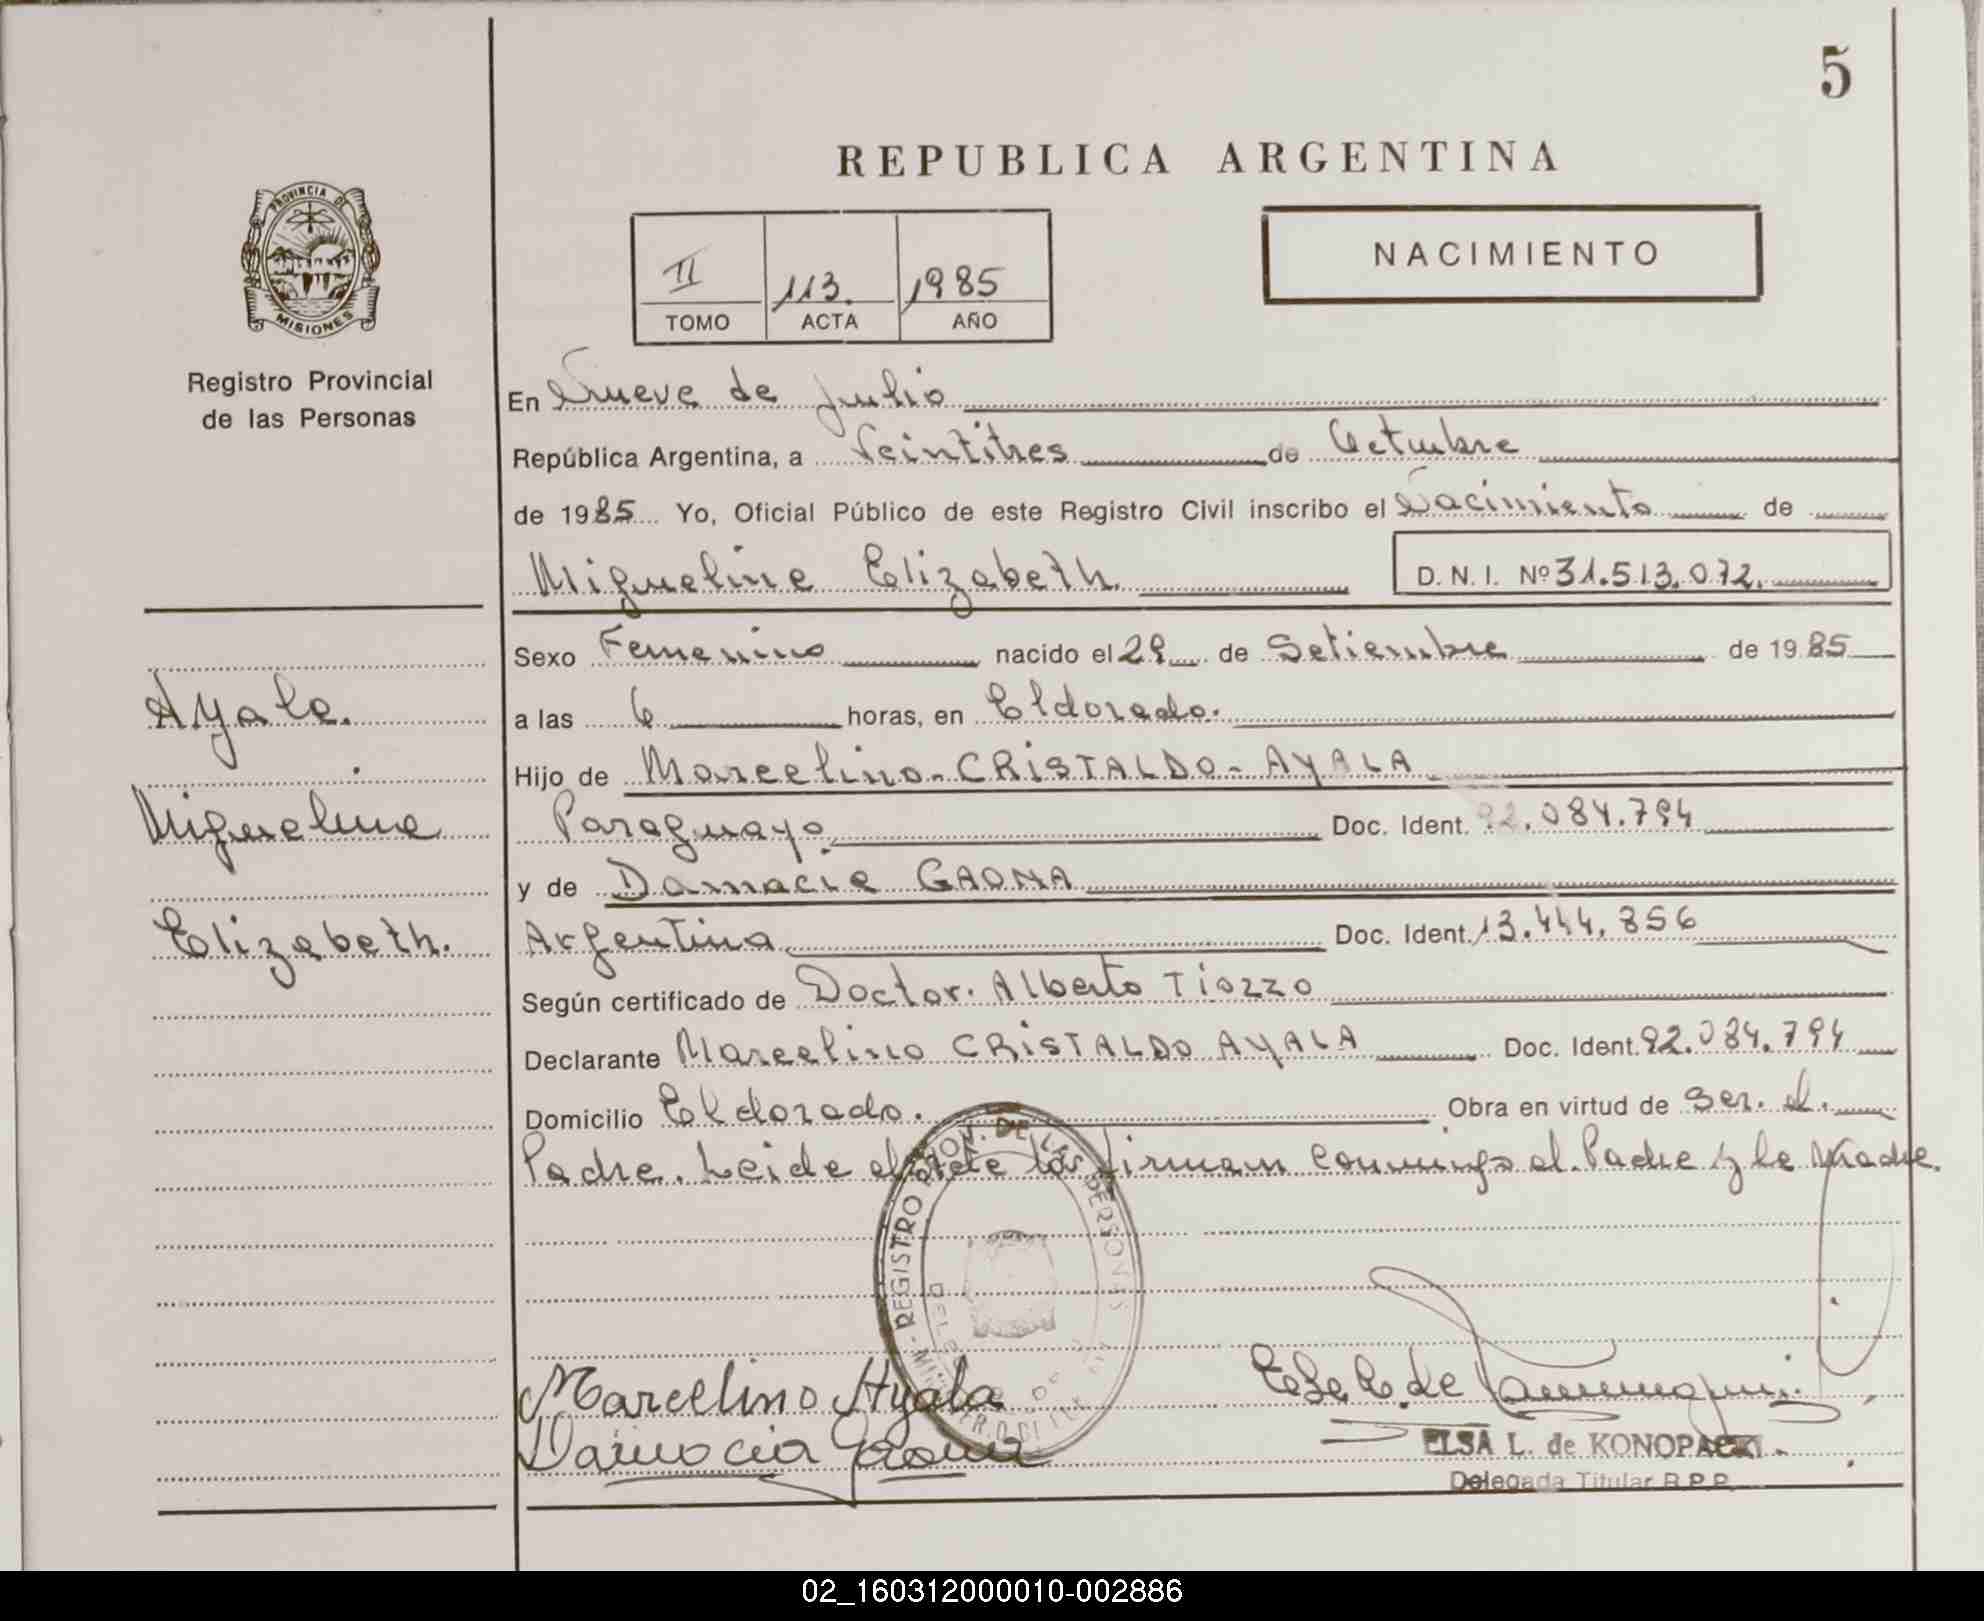 5
REPUBLICA ARGENTINA
PROVINCIA DE
MISIONES
Registro Provincial
de las Personas
II 113. 1985
TOMO ACTA AÑO
NACIMIENTO
En Nueve de Julio
República Argentina, a Veintitres de Octubre
de 1985 Yo, Oficial Público de este Registro Civil inscribo el Nacimiento de
Miguelina Elizabeth. D. N. I. Nº 31.513.072.
Sexo Femenino nacido el 29 de Setiembre de 1985
Ayala.
a las 6 horas, en Eldorado.
Hijo de Marcelino - CRISTALDO - AYALA
Miguelina
Paraguayo Doc. Ident. 92.084.794
y de Damacia GAONA
Elizabeth.
Argentina Doc. Ident. 13.444.856
Según certificado de Doctor. Alberto Tiozzo
Declarante Marcelino CRISTALDO AYALA Doc. Ident. 92.084.794
Domicilio Eldorado. Obra en virtud de ser. el.
Padre. Leida el Acta la firman conmigo el Padre y la Madre.
REGISTRO PROV. DE LAS PERSONAS
Marcelino Ayala
Damacia Gaona
ELSA L. de KONOPACKI
Delegada Titular R.P.P.
02_160312000010-002886